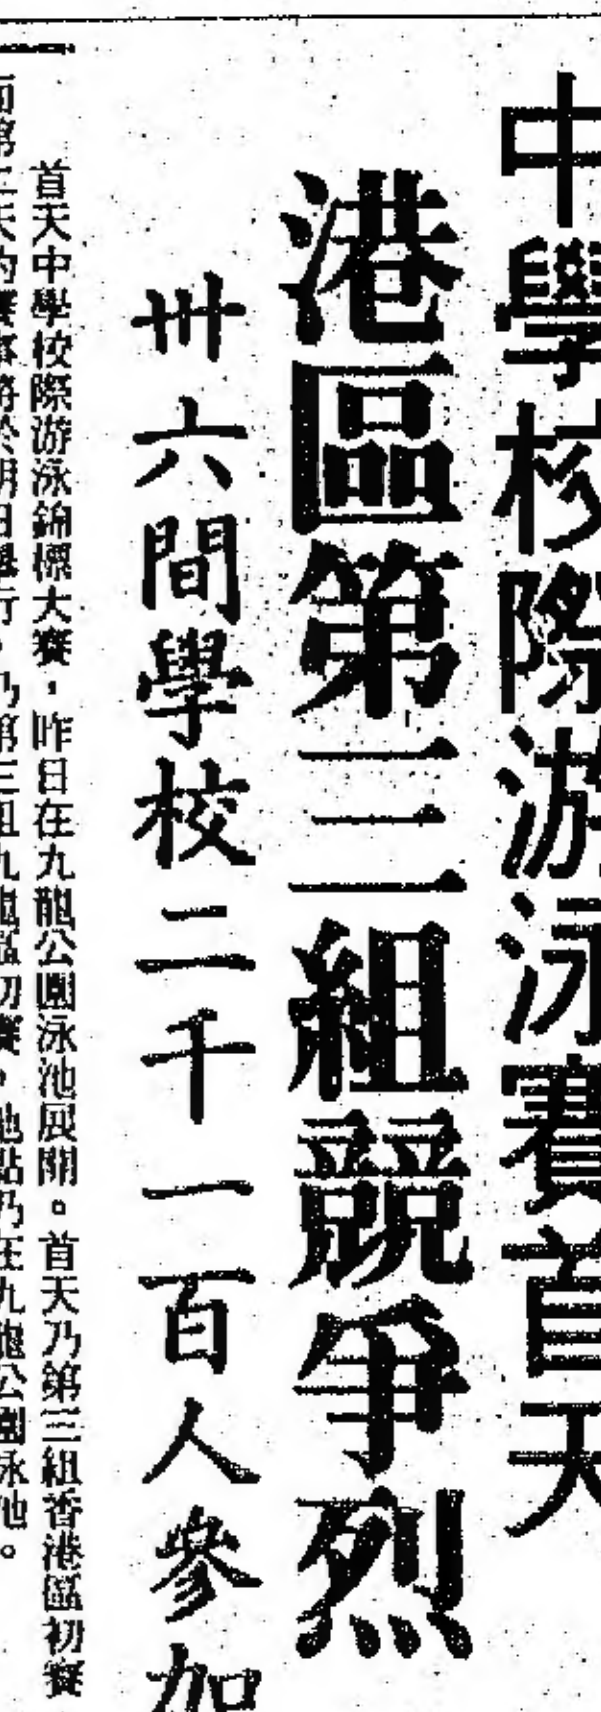 中學校際游泳賽首天
港區第三組競爭烈
卅六間學校二千一百人參加
首天中學校際游泳錦標大賽，昨日在九龍公園泳池展開。首天乃第三組香港區初賽
而第二天的賽事將於明日舉行，乃第三組九龍區初賽，地點乃在九龍公園泳池。